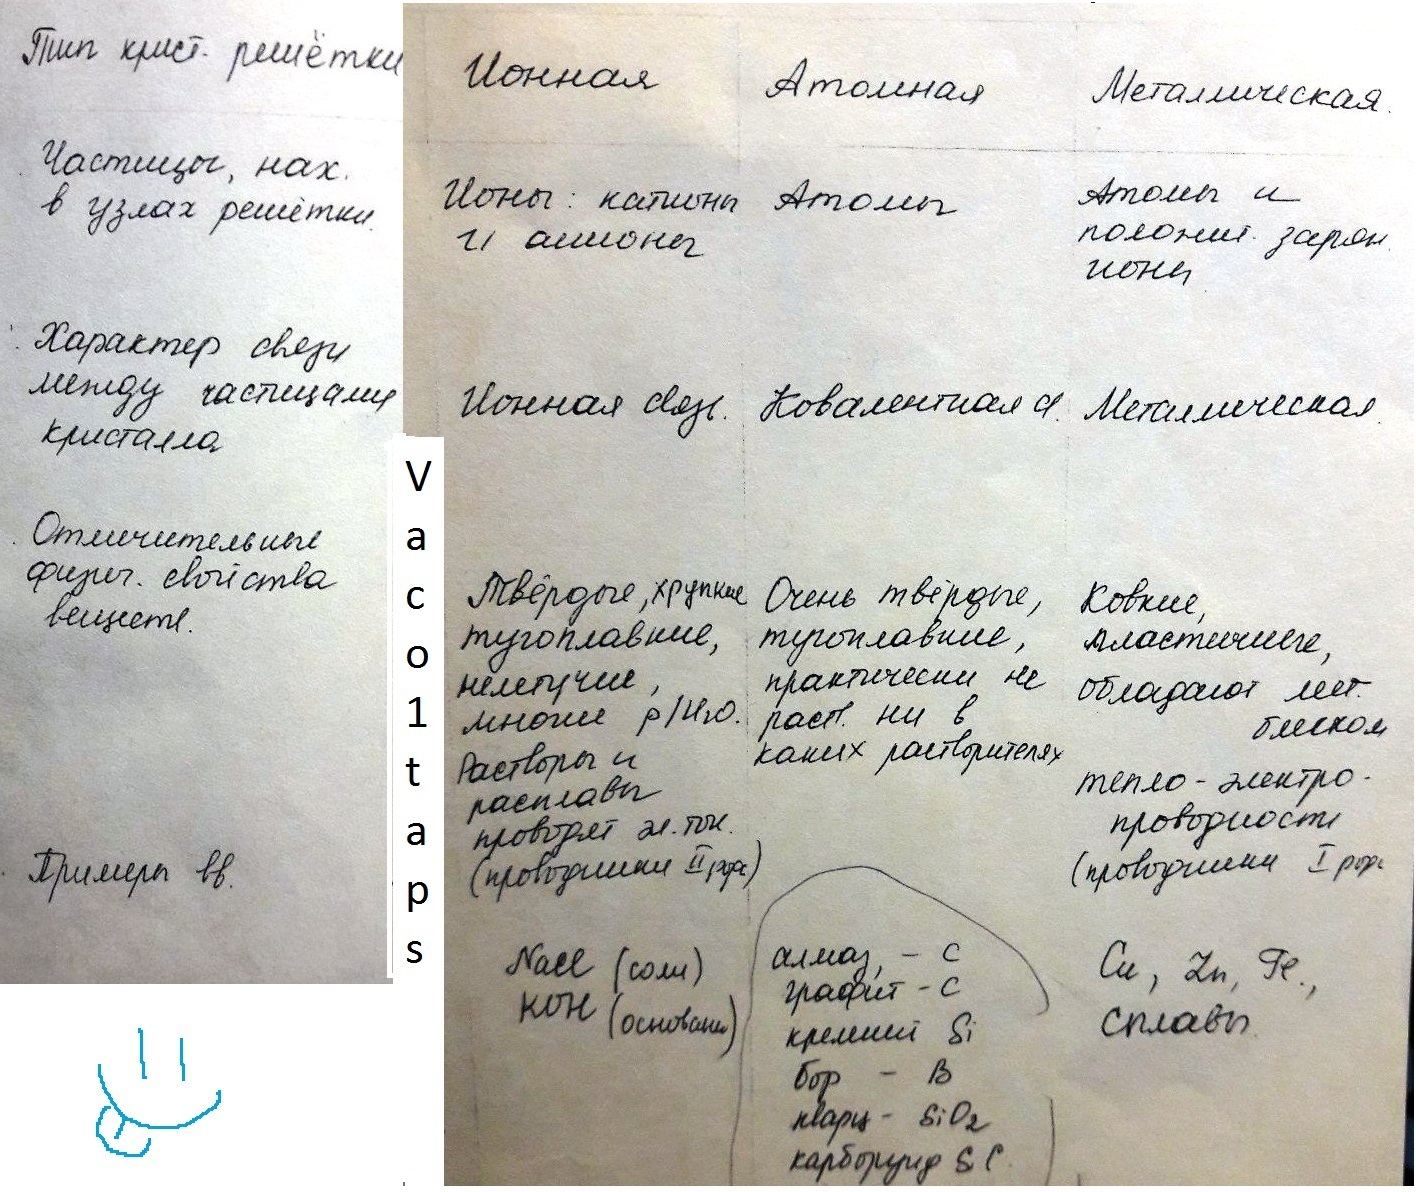 Тип крист. решётки
Ионная
Атомная
Металлическая.
Частицы, нах.
в узлах решётки.
Ионы: катионы
и анионы
Атомы
Атомы и
положит. заряж.
ионы
Характер связи
между частицами
кристалла
Ионная связь.
Ковалентная
Металлическая.
Отличительные
физич. свойства
веществ.
Твёрдые, хрупкие
тугоплавкие,
нелетучие,
многие р/H2O.
Растворы и
расплавы
проводят эл. ток.
(проводники II рода)
Очень твёрдые,
тугоплавкие,
практически не
раств. ни в
каких растворителях
Ковкие,
пластичные,
обладают мет.
блеском
тепло-электро-
проводности
(проводники I рода
Примеры вв.
NaCl (соли)
KOH (основания)
алмаз, - C
графит - C
кремний Si
бор - B
кварц - SiO2
карборунд SiC
Cu, Zn, Fe.,
сплавы.
Vaco1taps